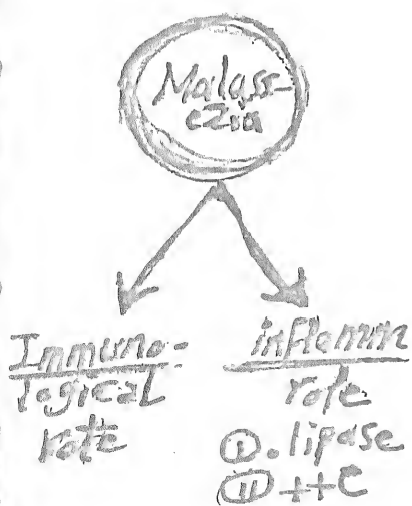 Malass-
ezia
Immuno-
logical
role
inflamm
role
①. lipase
⑪ ++C